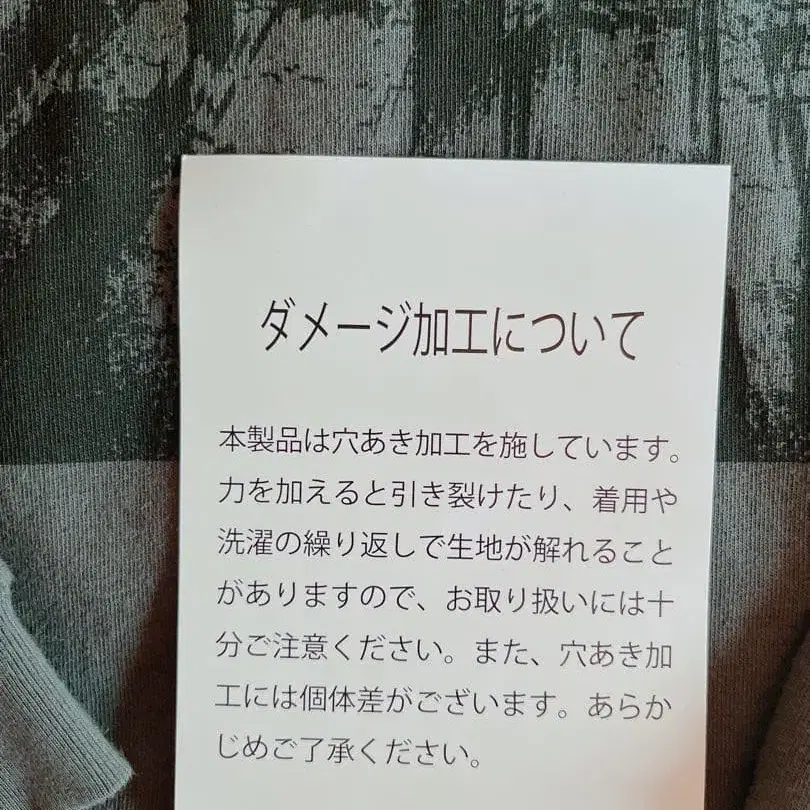 ダメージ加工について
本製品は穴あき加工を施しています。
力を加えると引き裂けたり、着用や
洗濯の繰り返しで生地が解れること
がありますので、お取り扱いには十
分ご注意ください。また、穴あき加
工には個体差がございます。あらか
じめご了承ください。